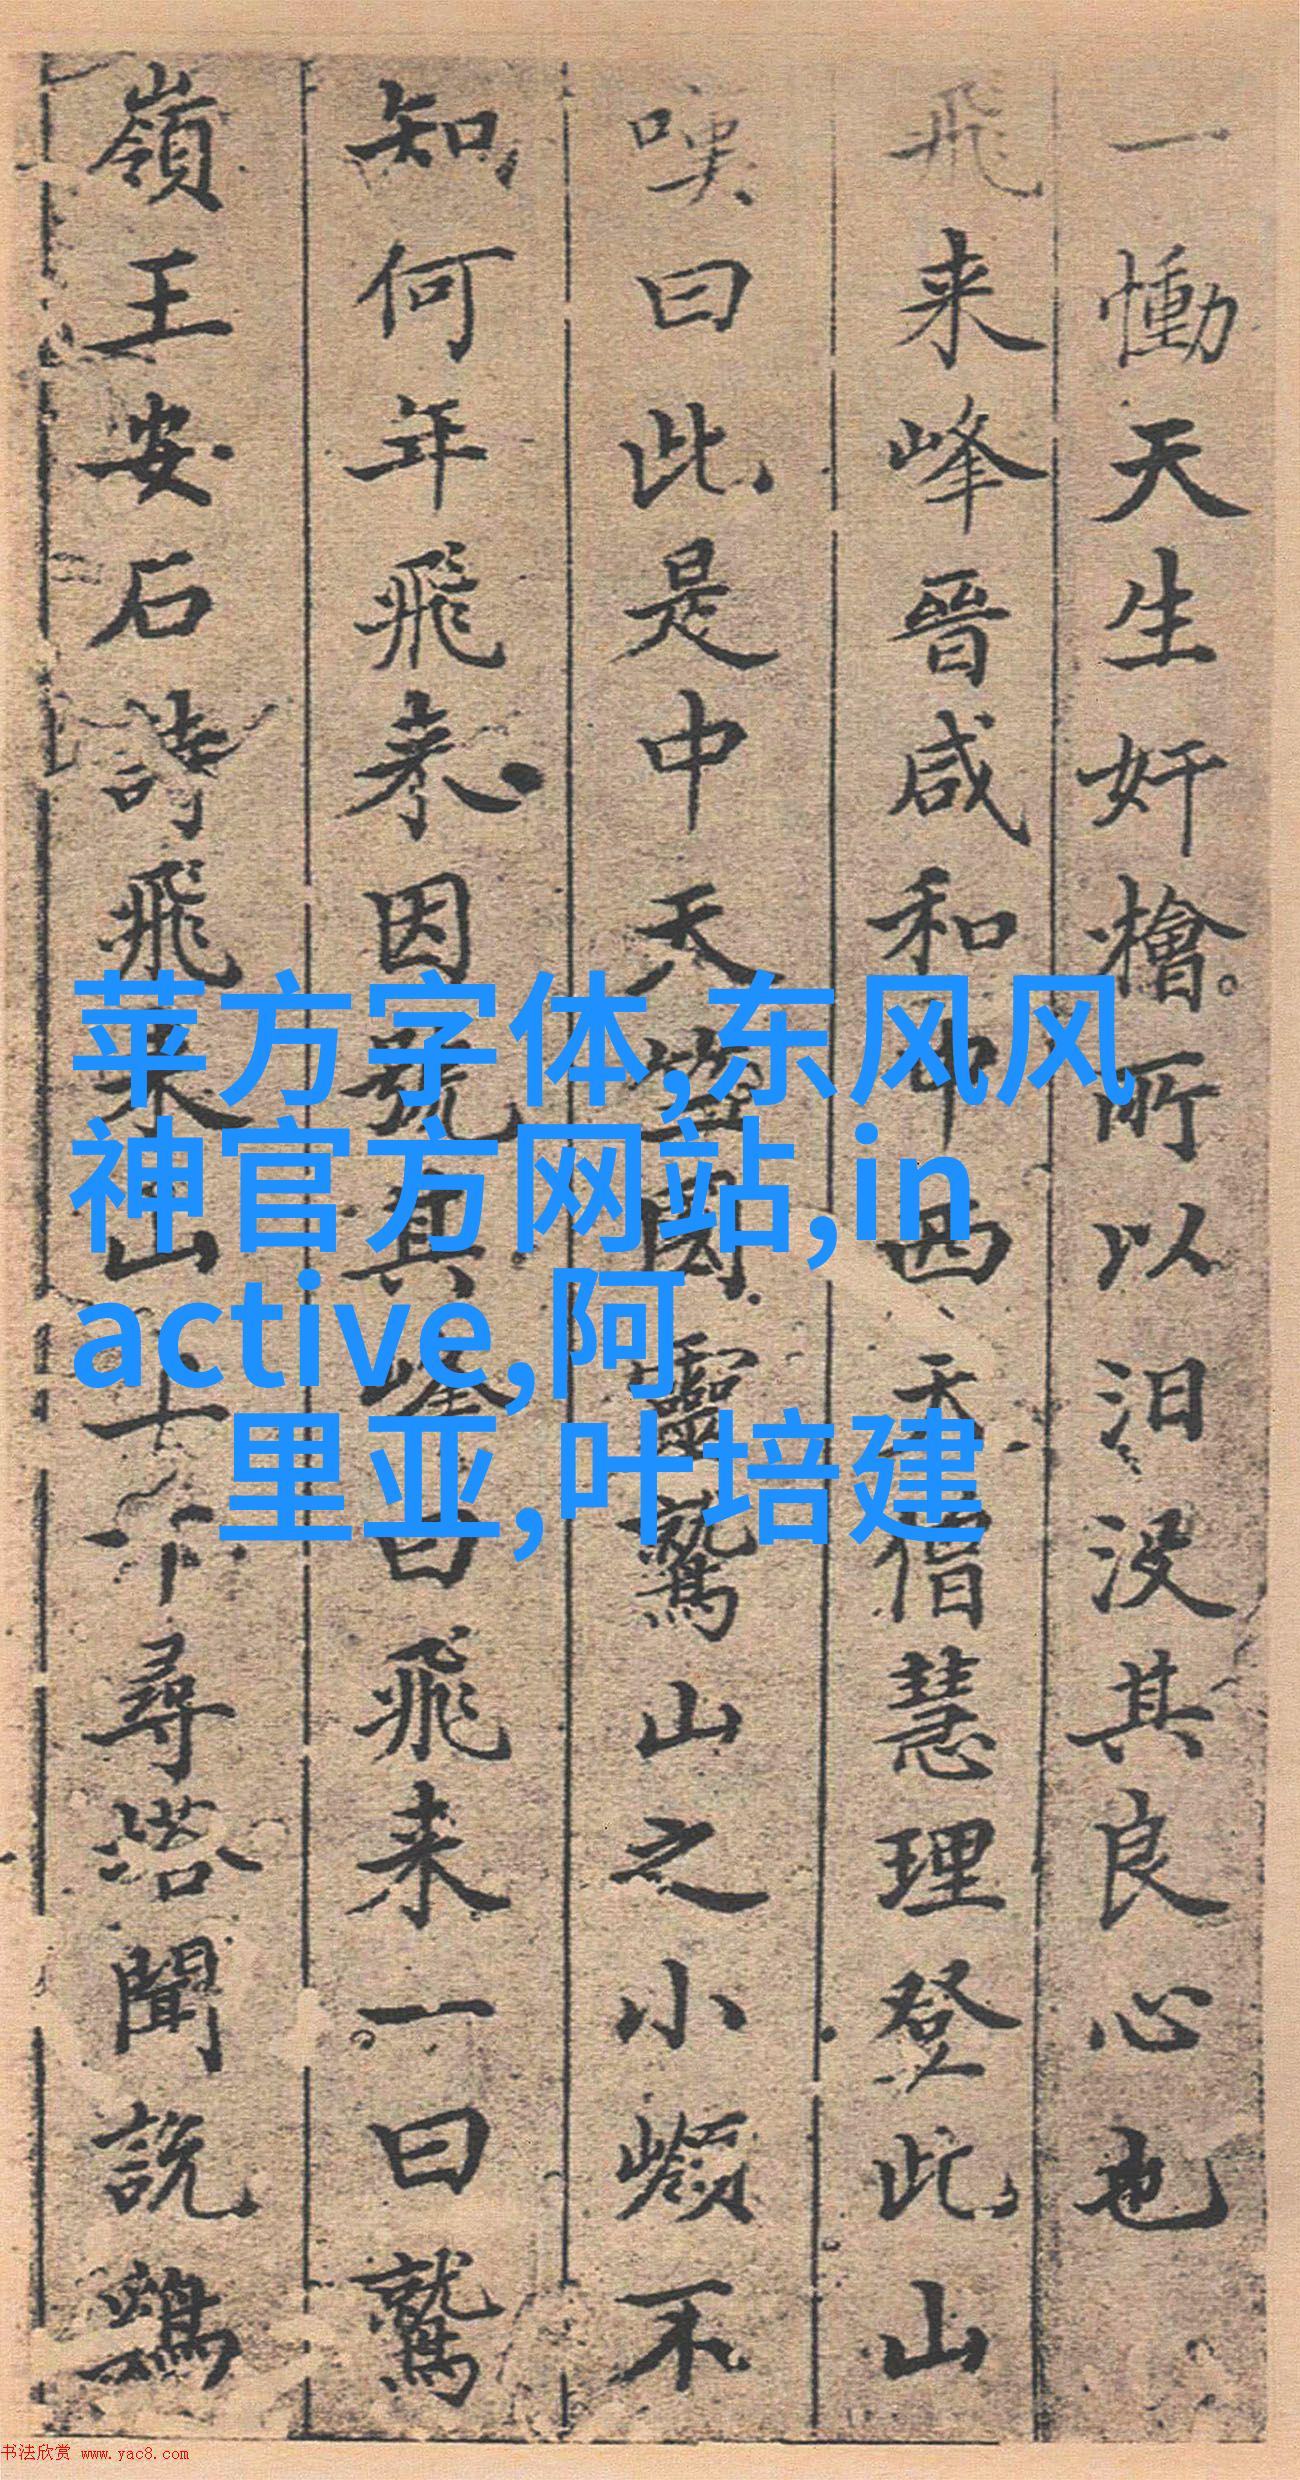 一慟天生奸檜所以汩没其良心也
飛来峰晉咸和中西天僧慧理登此山
嘆曰此是中天竺國靈鷲山之小嶺不
知何年飛来因號其峰曰飛来一曰鷲
嶺王安石詩飛来山上千尋塔聞說鷄
苹方字体,东风风
神官方网站,in
active,阿
里亚,叶培建
书法欣赏 www.yac8.com